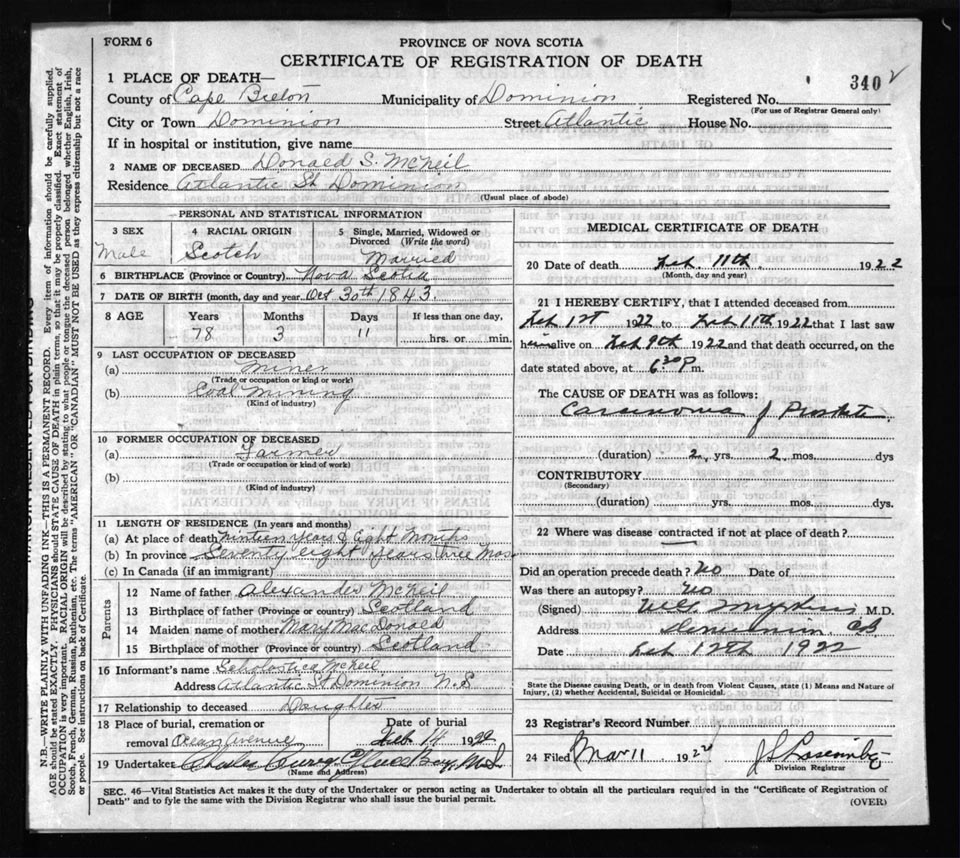 FORM 6
PROVINCE OF NOVA SCOTIA
CERTIFICATE OF REGISTRATION OF DEATH
340
1 PLACE OF DEATH—
County of Cape Breton Municipality of Dominion Registered No.
(For use of Registrar General only)
City or Town Dominion Street Atlantic House No.
If in hospital or institution, give name
2 NAME OF DECEASED Donald S. McNeil
Residence Atlantic St Dominion
(Usual place of abode)
PERSONAL AND STATISTICAL INFORMATION
3 SEX 4 RACIAL ORIGIN 5 Single, Married, Widowed or Divorced (Write the word)
Male Scotch Married
6 BIRTHPLACE (Province or Country) Nova Scotia
7 DATE OF BIRTH (month, day and year Oct 30th 1843.
8 AGE Years Months Days If less than one day,
78 3 11 hrs. or min.
9 LAST OCCUPATION OF DECEASED
(a) miner
(Trade or occupation or kind or work)
(b) Coal mining
(Kind of industry)
10 FORMER OCCUPATION OF DECEASED
(a) Farmer
(Trade or occupation or kind of work)
(b)
(Kind of industry)
11 LENGTH OF RESIDENCE (In years and months)
(a) At place of death nintteen years & Eight Months
(b) In province Seventy eight years three Mos
(c) In Canada (if an immigrant)
Parents
12 Name of father Alexander McNeil
13 Birthplace of father (Province or country) Scotland
14 Maiden name of mother Mary MacDonald
15 Birthplace of mother (Province or country) Scotland
16 Informant's name Scholastica McNeil
Address Atlantic St Dominion N.S
17 Relationship to deceased Daughter
18 Place of burial, cremation or Date of burial
removal Ocean Avenue Feb 14 1922
19 Undertaker Charles Glace Bay, N.S.
(Name and Address)
MEDICAL CERTIFICATE OF DEATH
20 Date of death Feb 11th. 1922
(Month, day and year)
21 I HEREBY CERTIFY, that I attended deceased from
Feb 1st 1922 to Feb 11th 1922 that I last saw
him alive on Feb 9th 1922 and that death occurred, on the
date stated above, at 6.30 P m.
The CAUSE OF DEATH was as follows:
Carcinoma of Prostate
(duration) 2 yrs. 2 mos. dys
CONTRIBUTORY
(Secondary)
(duration) yrs. mos. dys.
22 Where was disease contracted if not at place of death?
Did an operation precede death? No Date of
Was there an autopsy? No
(Signed) M.D.
Address Dominion CB
Date Feb 12th 1922
State the Disease causing Death, or in death from Violent Causes, state (1) Means and Nature of
Injury, (2) whether Accidental, Suicidal or Homicidal.
23 Registrar's Record Number
24 Filed Mar 11 1922
Division Registrar
SEC. 46—Vital Statistics Act makes it the duty of the Undertaker or person acting as Undertaker to obtain all the particulars required in the "Certificate of Registration of
Death" and to fyle the same with the Division Registrar who shall issue the burial permit.
(OVER)
N.B.—WRITE PLAINLY WITH UNFADING INK—THIS IS A PERMANENT RECORD. Every item of information should be carefully supplied.
AGE should be stated EXACTLY. PHYSICIANS should STATE CAUSE OF DEATH in plain terms, so that it may be properly classified. Exact statement of
OCCUPATION is very important. RACIAL ORIGIN will be described by stating to what people or tongue the deceased person belonged whether English, Irish,
Scotch, French, German, Russian, Ruthenian, etc. The terms "AMERICAN" OR "CANADIAN" MUST NOT BE USED as they express citizenship but not a race
or people. See instructions on back of Certificate.